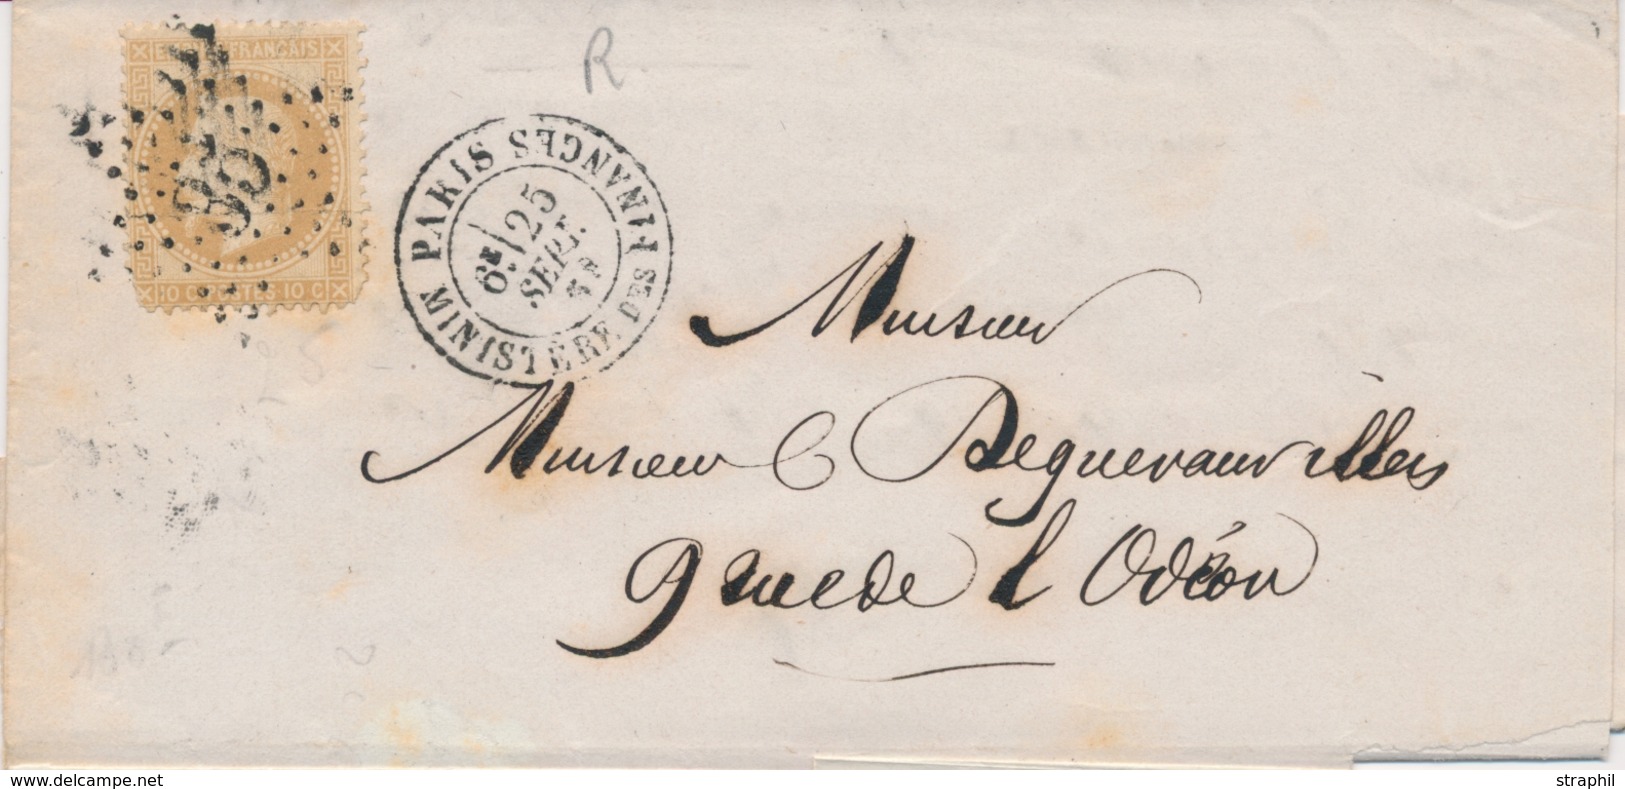 EMPIRE FRANÇAIS
35
10 C POSTES 10 C
R
PARIS MINISTÈRE DES FINANCES
6E 25 SEPT.
Monsieur
Monsieur Deguevauvillers
9 rue de l'Odéon
www.delcampe.net
straphil